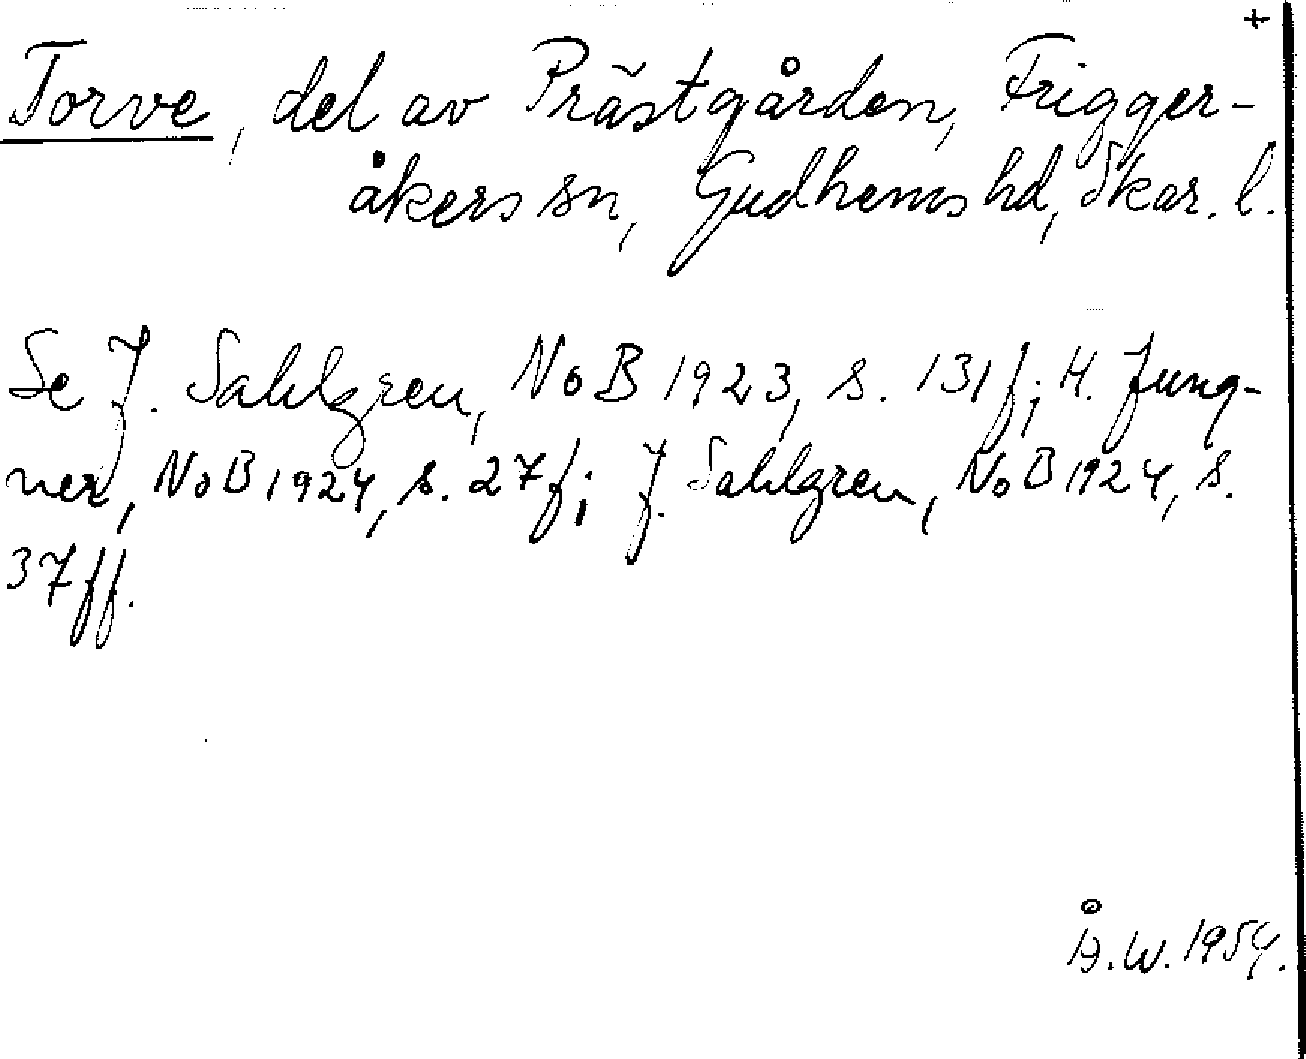 +
Torve, del av Prästgården, Frigger-
åkers sn, Gudhems hd, Skar. l.
Se J. Sahlgren, NoB 1923, s. 131f; H. Jung-
ner, NoB 1924, s. 27f; J. Sahlgren, NoB 1924, s.
37ff.
Å.W. 1954.